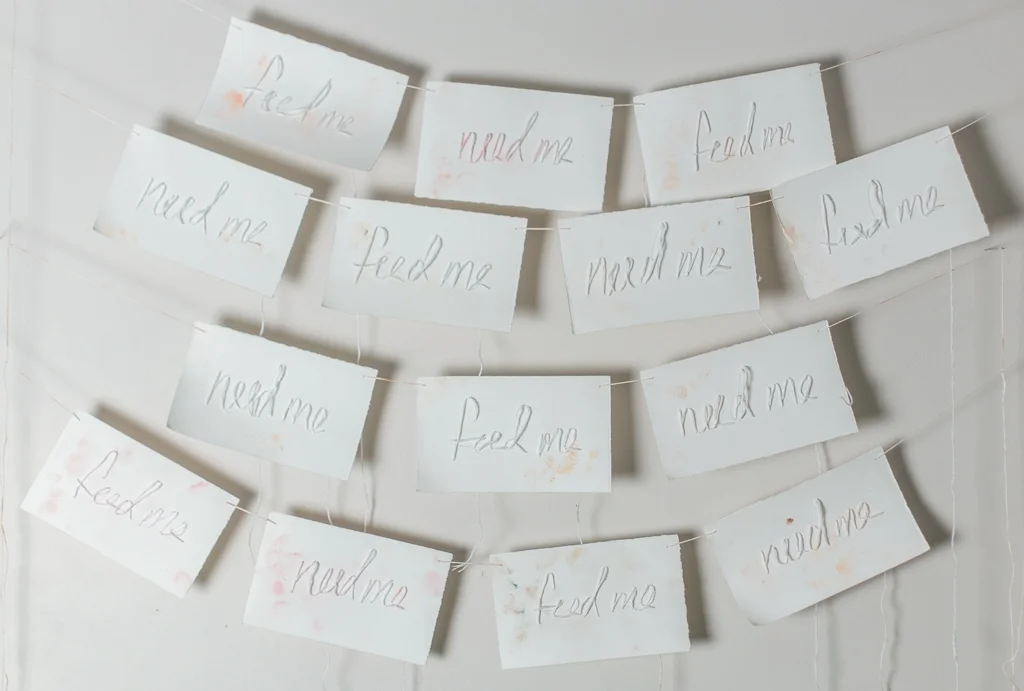 feed me
need me
feed me
need me
feed me
need me
feed me
need me
feed me
need me
feed me
need me
feed me
need me